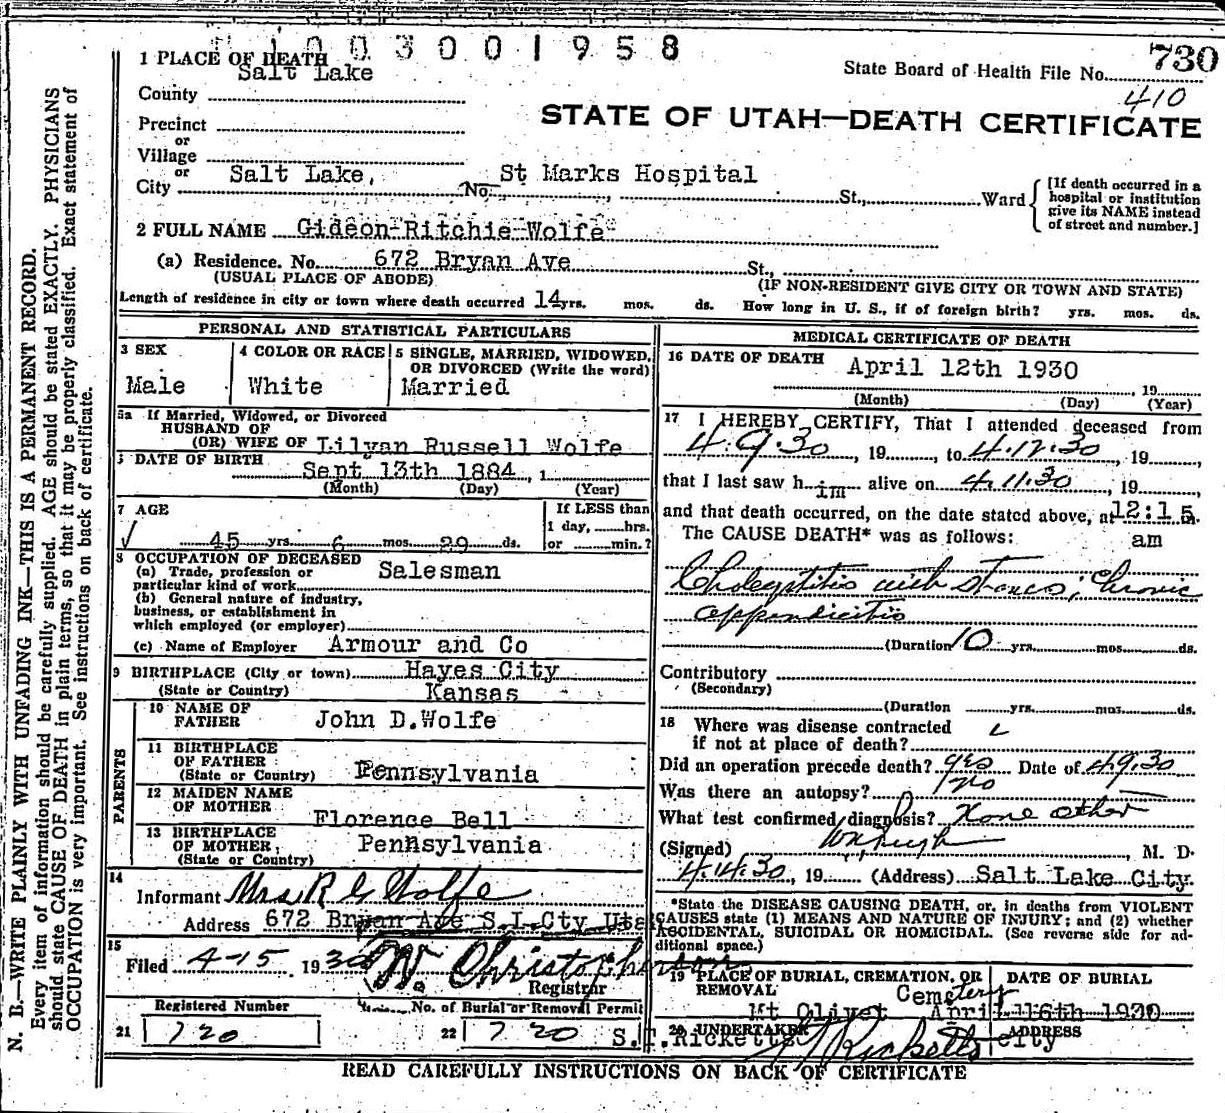 1003001958
1 PLACE OF DEATH
Salt Lake
State Board of Health File No. 730
410
County
STATE OF UTAH—DEATH CERTIFICATE
Precinct
or
Village
or
City Salt Lake, No. St Marks Hospital St., Ward
[If death occurred in a
hospital or institution
give its NAME instead
of street and number.]
2 FULL NAME Gideon Ritchie Wolfe
(a) Residence. No. 672 Bryan Ave St.,
(USUAL PLACE OF ABODE) (IF NON-RESIDENT GIVE CITY OR TOWN AND STATE)
Length of residence in city or town where death occurred 14 yrs. mos. ds. How long in U. S., if of foreign birth? yrs. mos. ds.
PERSONAL AND STATISTICAL PARTICULARS
3 SEX
Male
4 COLOR OR RACE
White
5 SINGLE, MARRIED, WIDOWED,
OR DIVORCED (Write the word)
Married
5a If Married, Widowed, or Divorced
HUSBAND OF
(OR) WIFE OF Lilyan Russell Wolfe
DATE OF BIRTH
Sept 13th 1884, 1
(Month) (Day) (Year)
7 AGE
45 yrs. 6 mos. 29 ds.
If LESS than
1 day, hrs.
or min.?
8 OCCUPATION OF DECEASED
(a) Trade, profession or
particular kind of work Salesman
(b) General nature of industry,
business, or establishment in
which employed (or employer)
(c) Name of Employer Armour and Co
9 BIRTHPLACE (City or town) Hayes City
(State or Country) Kansas
PARENTS
10 NAME OF
FATHER John D.Wolfe
11 BIRTHPLACE
OF FATHER
(State or Country) Pennsylvania
12 MAIDEN NAME
OF MOTHER
Florence Bell
13 BIRTHPLACE
OF MOTHER,
(State or Country) Pennsylvania
14
Informant Mrs R G Wolfe
Address 672 Bryan Ave S.L.Cty Utah
15
Filed 4-15 1930 W. Christopherson
Registrar
Registered Number No. of Burial or Removal Permit
21 720 22 720
MEDICAL CERTIFICATE OF DEATH
16 DATE OF DEATH April 12th 1930
, 19
(Month) (Day) (Year)
17 I HEREBY CERTIFY, That I attended deceased from
4.9.30, 19, to 4.12.30, 19,
that I last saw him alive on 4.11.30, 19,
and that death occurred, on the date stated above, at 12:15 m.
The CAUSE DEATH* was as follows: am
Cholecystitis with stones; Chronic
appendicitis
(Duration 10 yrs. mos. ds.
Contributory
(Secondary)
(Duration yrs. mos. ds.
18 Where was disease contracted
if not at place of death?
Did an operation precede death? yes Date of 4.9.30
Was there an autopsy? no
What test confirmed diagnosis? None other
(Signed) , M. D.
4.14.30, 19 (Address) Salt Lake City.
*State the DISEASE CAUSING DEATH, or, in deaths from VIOLENT
CAUSES state (1) MEANS AND NATURE OF INJURY; and (2) whether
ACCIDENTAL, SUICIDAL OR HOMICIDAL. (See reverse side for ad-
ditional space.)
19 PLACE OF BURIAL, CREMATION, OR
REMOVAL
Cemetery
Mt Olivet
DATE OF BURIAL
April 16th 1930
20 UNDERTAKER
S.T.Ricketts
Ricketts
ADDRESS
city
READ CAREFULLY INSTRUCTIONS ON BACK OF CERTIFICATE
N. B.—WRITE PLAINLY WITH UNFADING INK—THIS IS A PERMANENT RECORD.
Every item of information should be carefully supplied. AGE should be stated EXACTLY. PHYSICIANS
should state CAUSE OF DEATH in plain terms, so that it may be properly classified. Exact statement of
OCCUPATION is very important. See instructions on back of certificate.